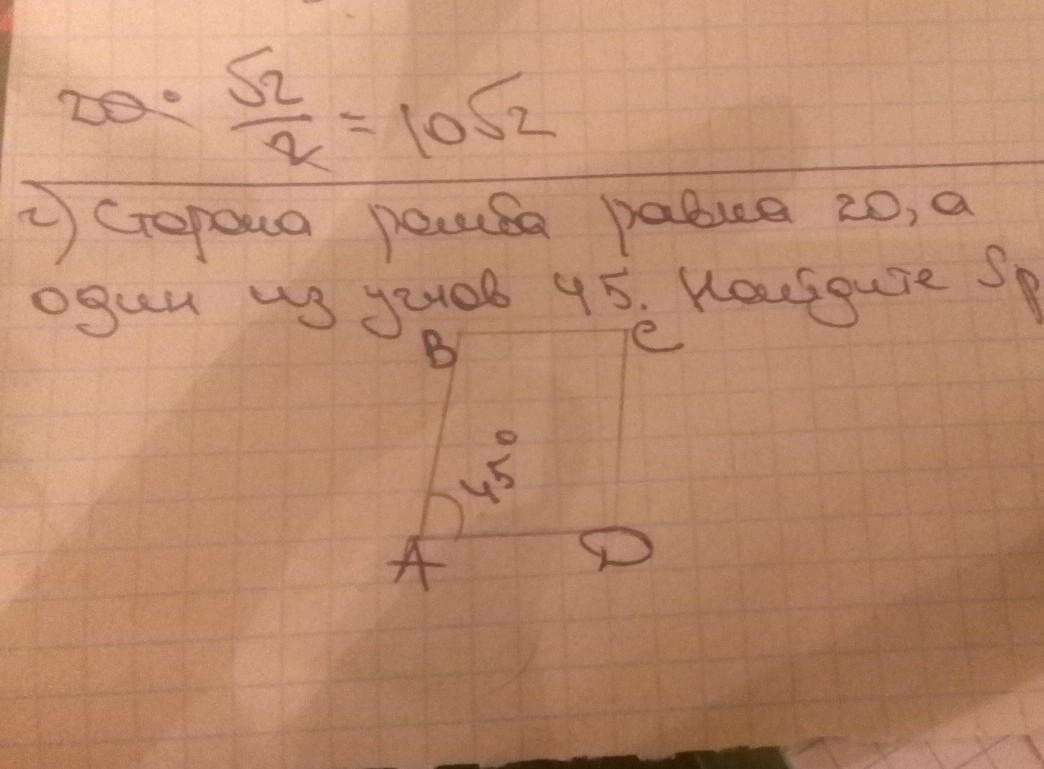 20 · √2/2 = 10√2
г) Сторона ромба равна 20, а
один из углов 45. Найдите Sр
B C
45°
A D